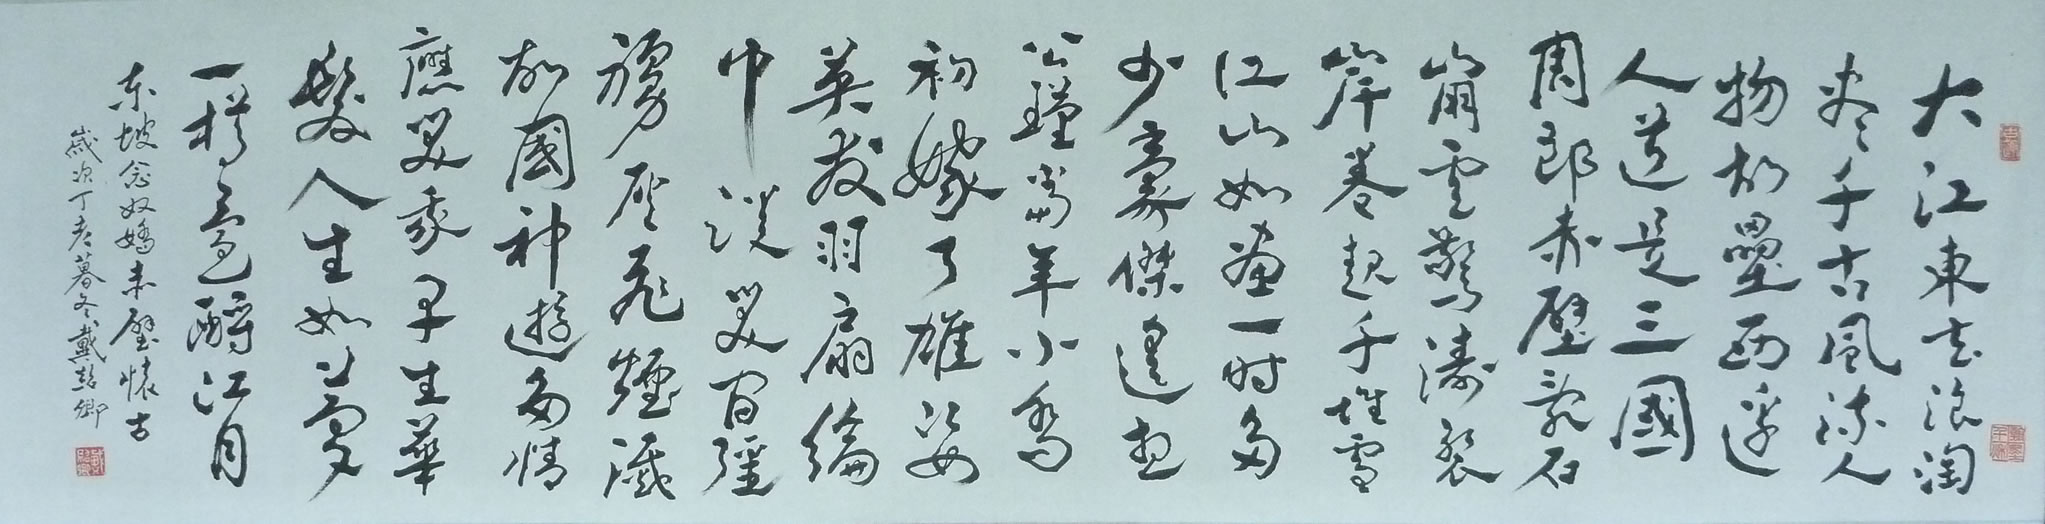 大江東去浪淘
盡千古風流人
物故壘西邊
人道是三國
周郎赤壁亂石
崩雲驚濤裂
岸卷起千堆雪
江山如畫一時多
少豪傑遙想
公瑾當年小喬
初嫁了雄姿
英發羽扇綸
巾談笑間彊
虜灰飛煙滅
故國神遊多情
應笑我早生華
髮人生如夢
一樽還酹江月
東坡念奴嬌赤壁懷古
歲次丁亥暮冬戴卿